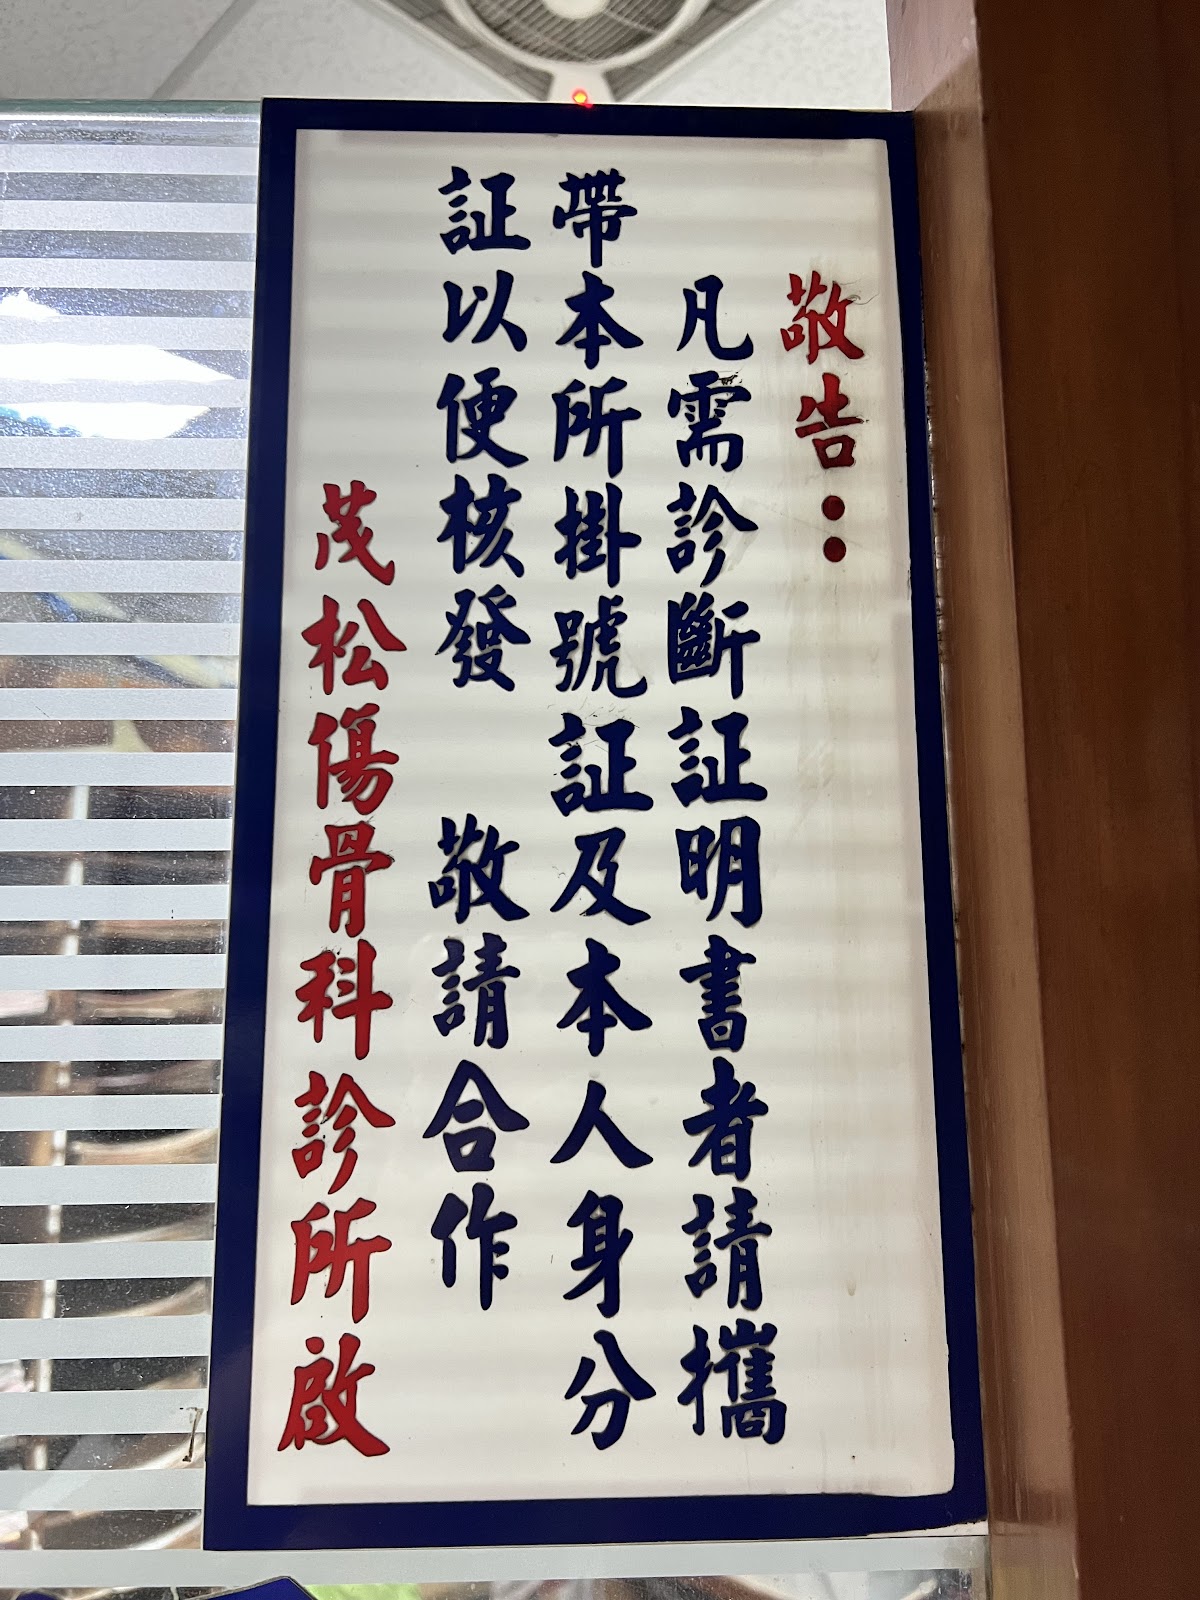 敬告：
凡需診斷証明書者請攜
帶本所掛號証及本人身分
証以便核發　敬請合作
茂松傷骨科診所啟